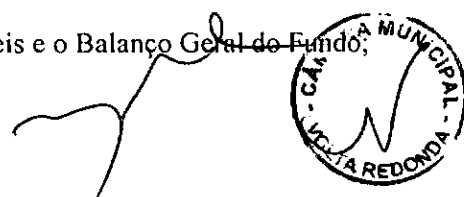 eis e o Balanço Geral do Fundo;
CÂMARA MUNICIPAL - VOLTA REDONDA -